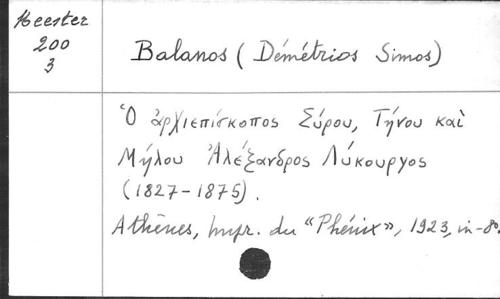 Meester
200
3
Balanos (Démétrios Simos)
Ὁ ἀρχιεπίσκοπος Σύρου, Τήνου καὶ
Μήλου Ἀλέξανδρος Λύκουργος
(1827-1875).
Athènes, Impr. du "Phénix", 1923, in-8º.